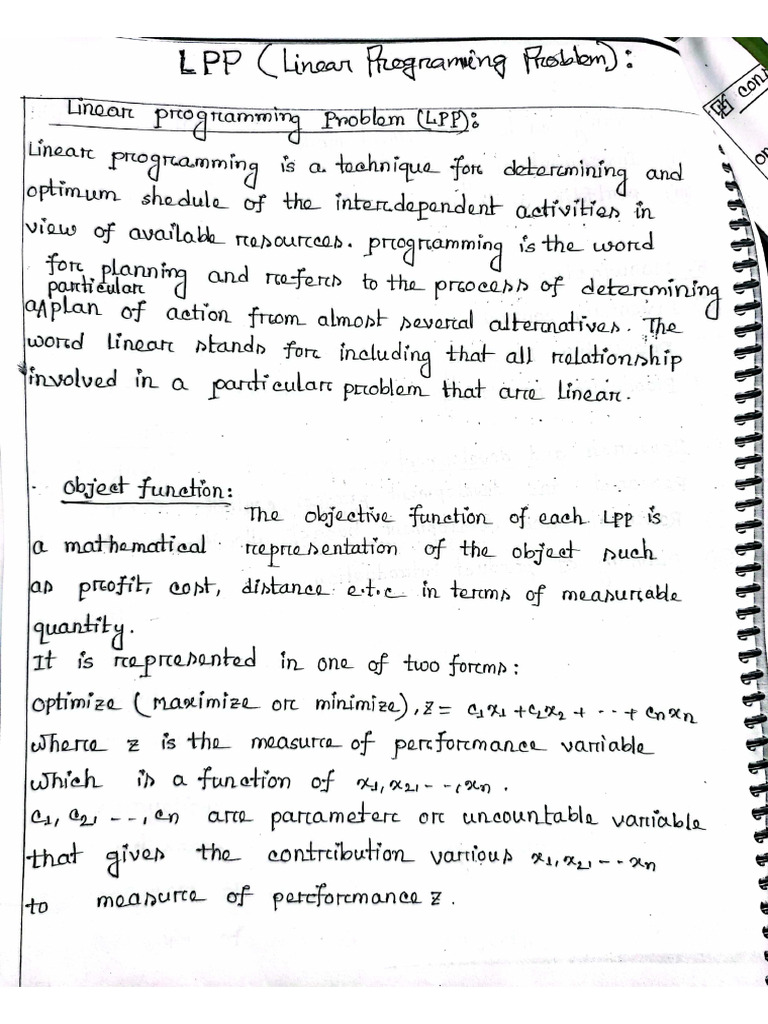 LPP (Linear Programing Problem):
Linear programming Problem (LPP):
Linear programming is a technique for determining and
optimum shedule of the interdependent activities in
view of available resources. programming is the word
for planning and refers to the process of determining
a particular plan of action from almost several alternatives. The
word linear stands for including that all relationship
involved in a particular problem that are linear.
Object function:
The objective function of each LPP is
a mathematical representation of the object such
as profit, cost, distance e.t.c in terms of measurable
quantity.
It is represented in one of two forms:
optimize (Maximize or minimize), z = c₁x₁ + c₂x₂ + --- + cₙxₙ
Where z is the measure of performance variable
which is a function of x₁, x₂, - -, xₙ.
c₁, c₂, - --, cₙ are parameter or uncountable variable
that gives the contribution various x₁, x₂, - -- xₙ
to measure of performance z.
con
on